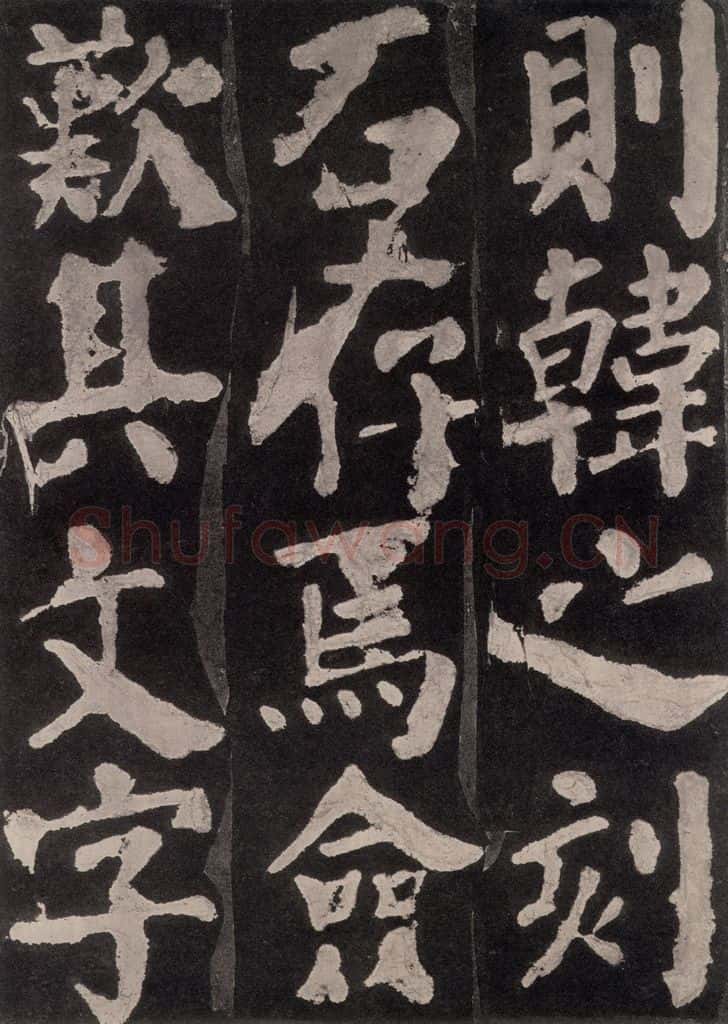 則韓之刻
石存焉僉
歎其文字
Shufawang.CN